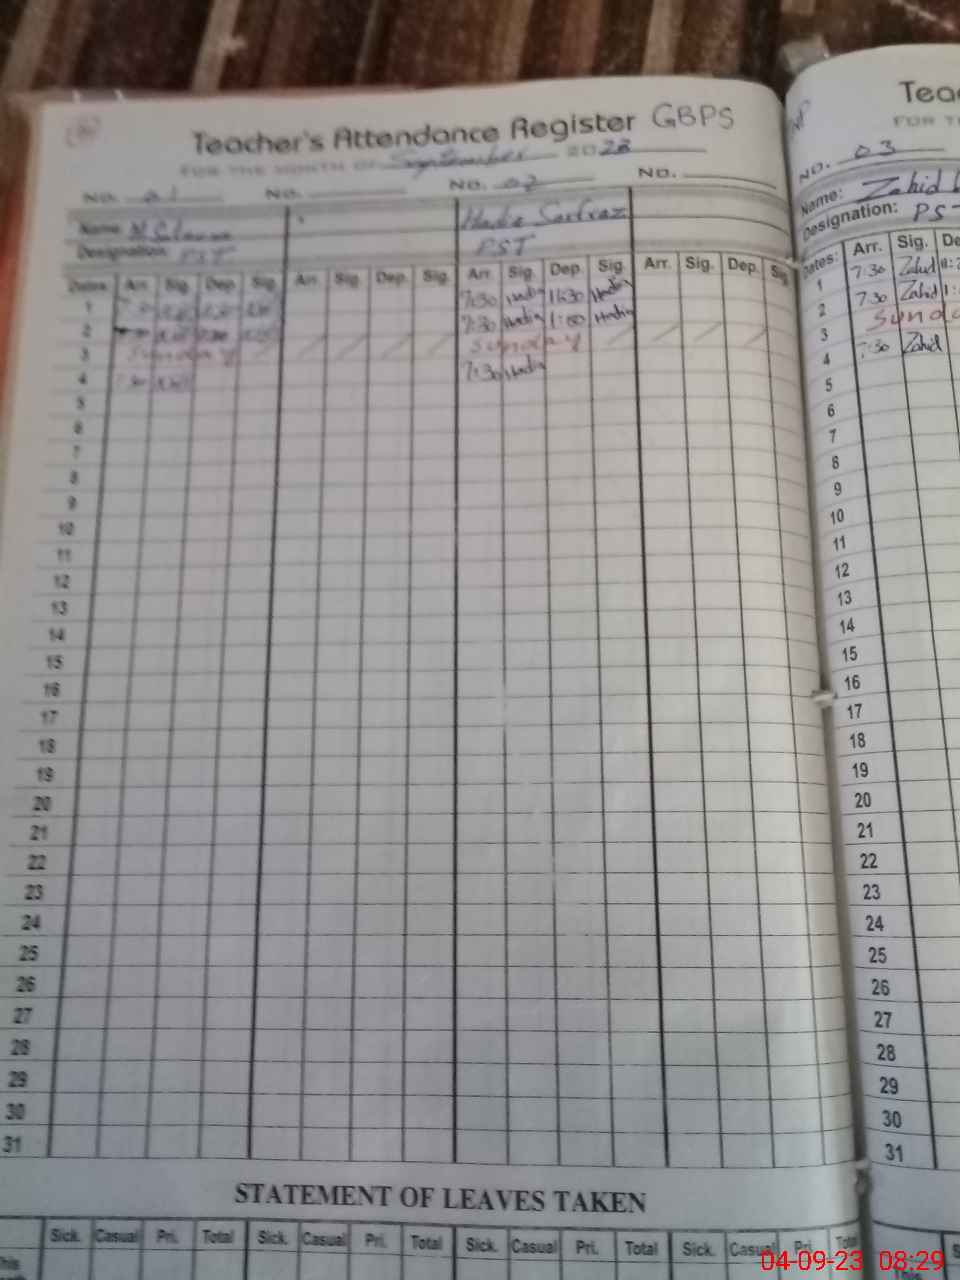 Teacher's Attendance Register GBPS
FOR THE MONTH OF September 2023
No. 01 No. No. 02 No.
Name: Hadia Sarfraz
Designation: PST PST
Dates Arr. Sig. Dep. Sig. Arr. Sig. Dep. Sig. Arr. Sig. Dep. Sig. Arr. Sig. Dep. Sig
1 7:30 Hadia 11:30 Hadia
2 7:30 Hadia 1:00 Hadia
3 Sunday Sunday
4 7:30 Hadia
5
6
7
8
9
10
11
12
13
14
15
16
17
18
19
20
21
22
23
24
25
26
27
28
29
30
31
STATEMENT OF LEAVES TAKEN
Sick. Casual Pri. Total Sick. Casual Pri. Total Sick. Casual Pri. Total Sick. Casual Pri. Total
This
Teac
FOR TH
NO. 03
Name: Zahid
Designation: PST
Dates: Arr. Sig. De
1 7:30 Zahid
2 7:30 Zahid
3 Sunda
4 7:30 Zahid
5
6
7
8
9
10
11
12
13
14
15
16
17
18
19
20
21
22
23
24
25
26
27
28
29
30
31
04-09-23 08:29